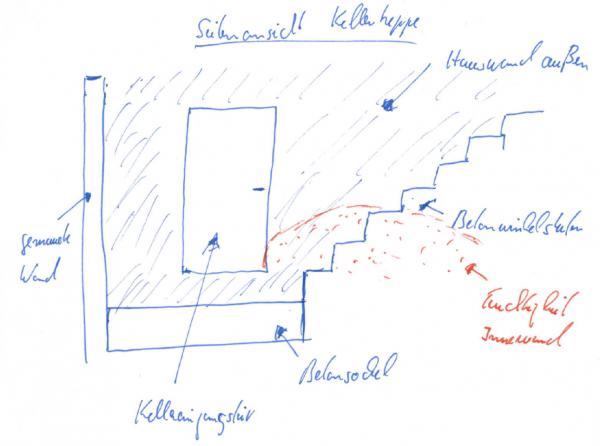 Seitenansicht Kellertreppe
Hauswand außen
gemauerte
Wand
Betonwinkelstufen
Feuchtigkeit
Innenwand
Betonsockel
Kellereingangstür